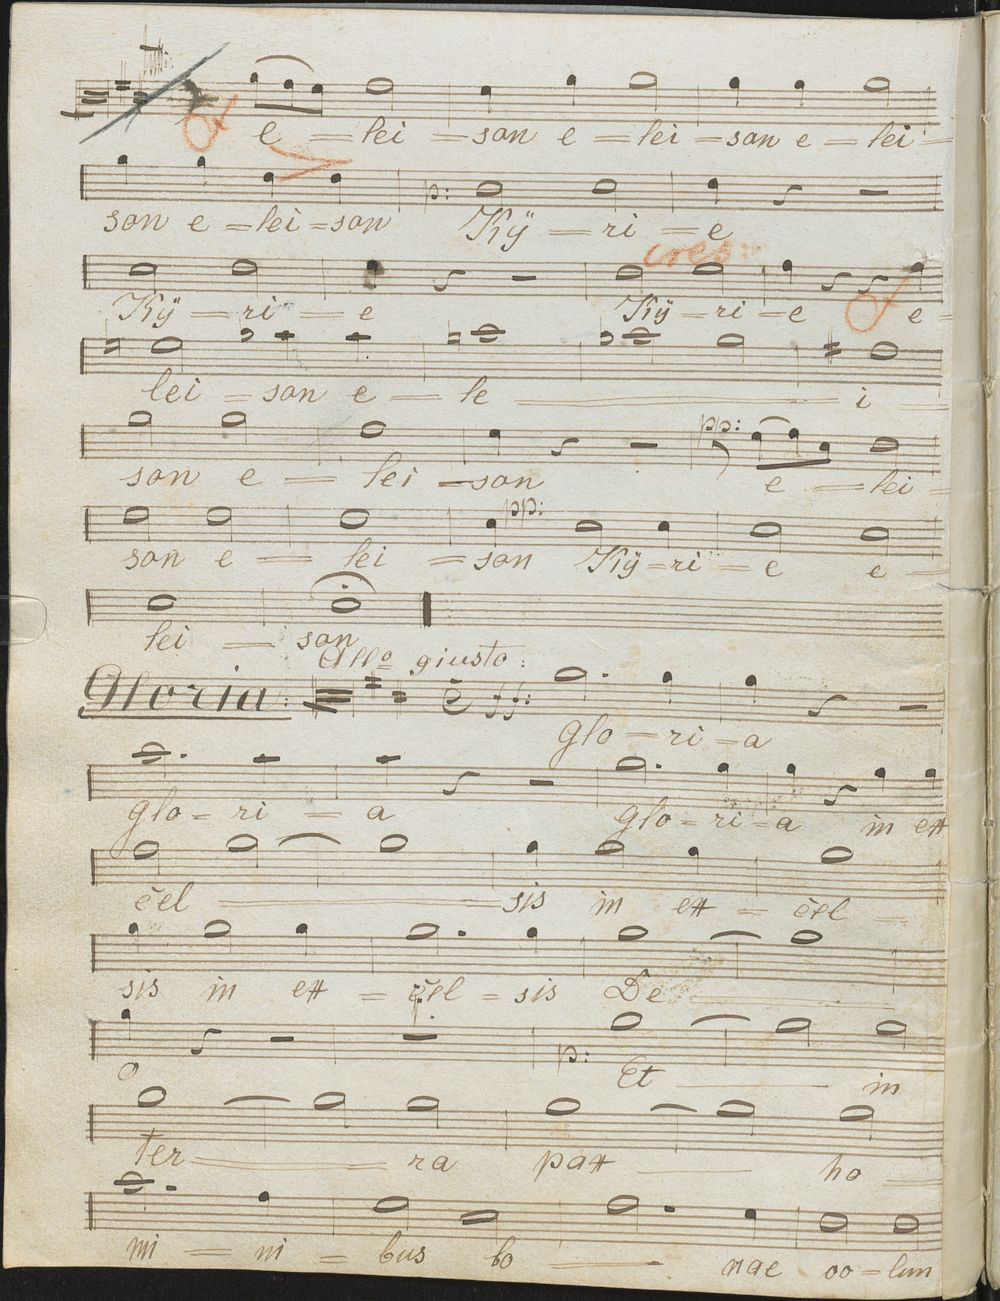 e = lei = son e = lei = son e = lei =
son e = lei = son p: Kÿ = ri = e
cres:
Kÿ = ri = e Kÿ = ri = e e =
lei = son e = le i =
pp:
son e = lei = son e = lei =
pp:
son e = lei = son Kÿ = ri = e e =
lei = son
Allo giusto:
Gloria: ff:
Glo = ri = a
glo = ri = a Glo = ri = a in ex
cel = sis in ex = cel =
sis in ex = cel = sis De
o p: Et in
ter = ra pax ho =
mi = ni = bus bo = nae vo = lun